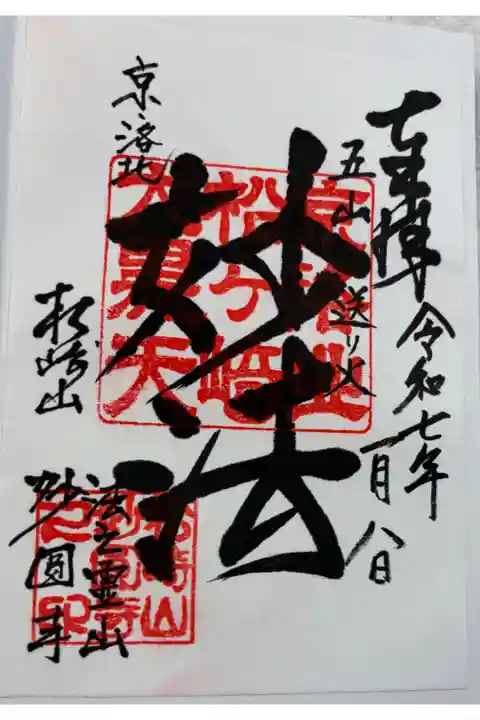 奉拝 令和七年一月八日
五山送り火
妙法
京洛北松ヶ崎大黒天
京洛北
松崎山
法之霊山
妙圓寺
松崎山妙圓寺之印